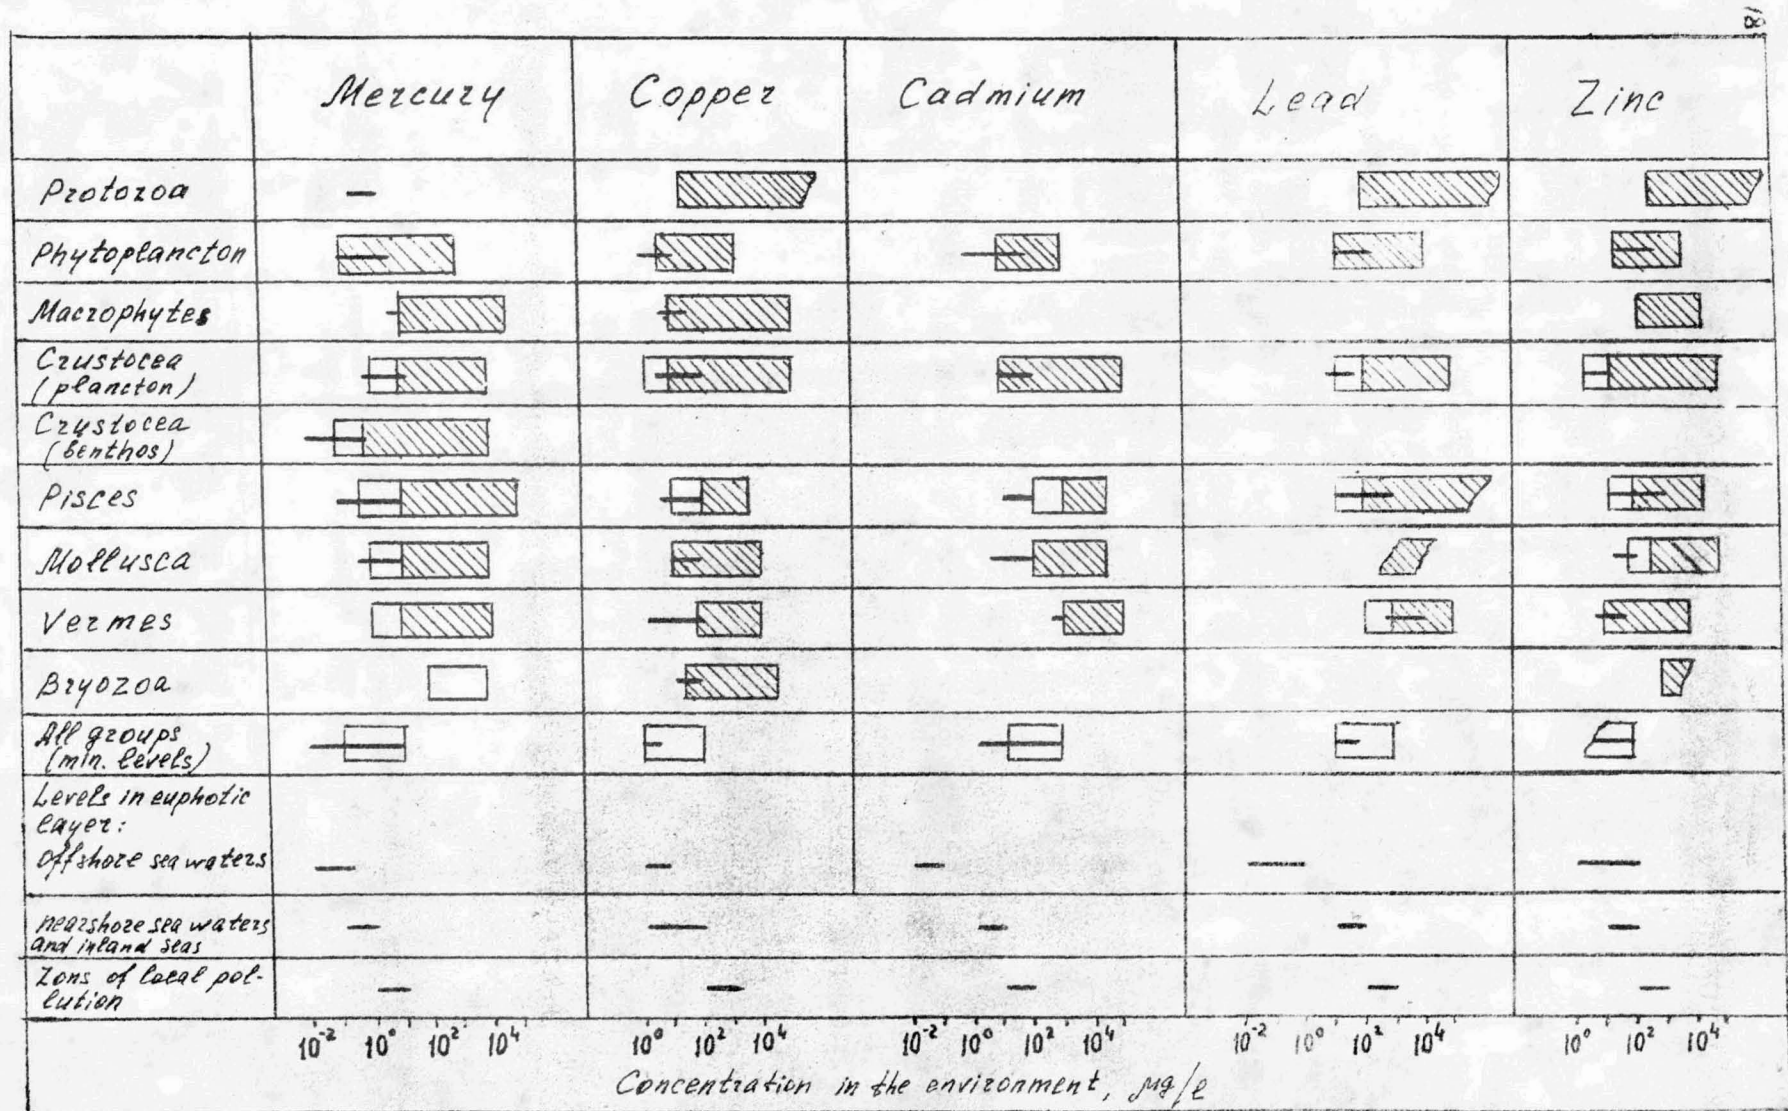 18
Mercury Copper Cadmium Lead Zinc
Protozoa
Phytoplancton
Macrophytes
Crustocea
(plancton)
Crustocea
(benthos)
Pisces
Mollusca
Vermes
Bryozoa
All groups
(min. levels)
Levels in euphotic
layer:
Offshore sea waters
nearshore sea waters
and inland seas
Zons of local pol-
lution
10⁻² 10⁰ 10² 10⁴ 10⁰ 10² 10⁴ 10⁻² 10⁰ 10² 10⁴ 10⁻² 10⁰ 10² 10⁴ 10⁰ 10² 10⁴
Concentration in the environment, μg/l